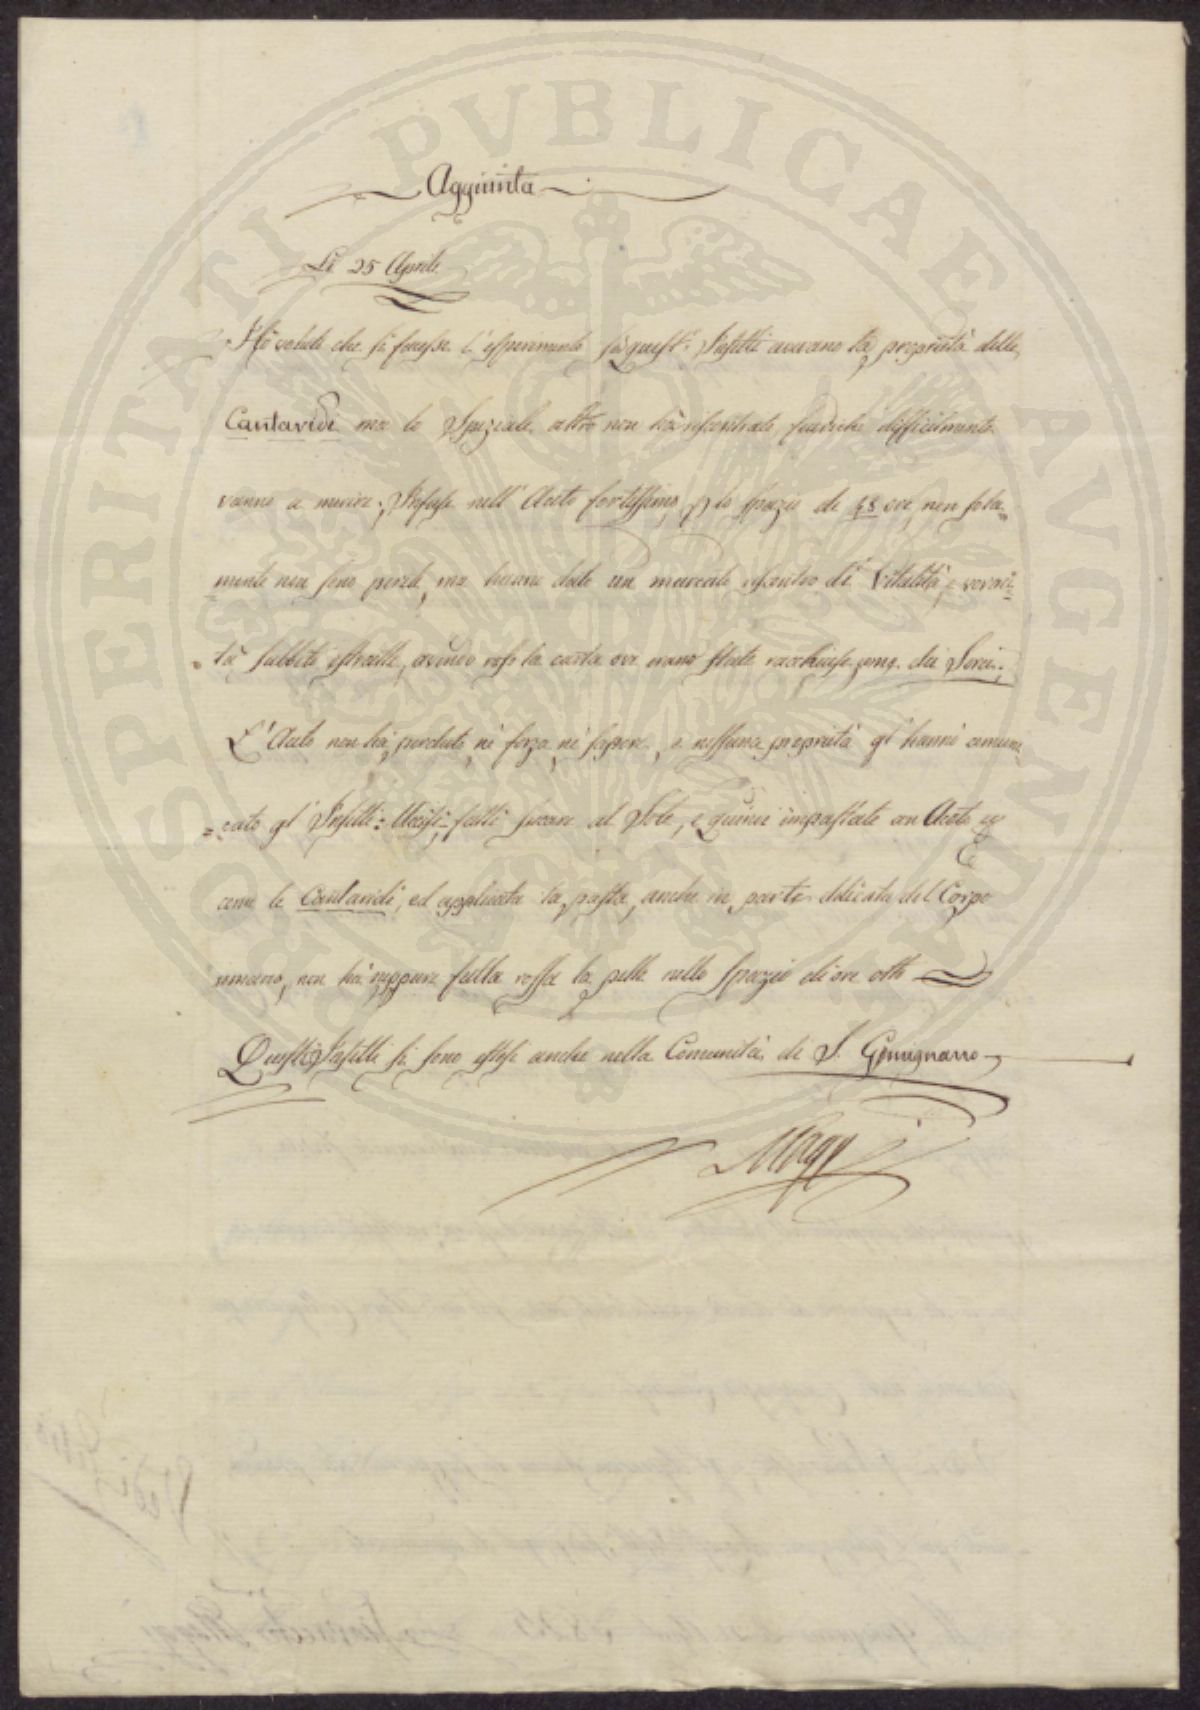 PROSPERITATI PVBLICAE AVGENDAE
Aggiunta
Li 25 Aprile
Hò voluto che si facesse l'esperimento se quest'Insetti avevano la proprietà delle
Cantaridi ma lo Speziale altro non hà riscontrato, fuorichè difficilmente
vanno a morire; Infuse nell'Aceto fortissimo, p lo spazio di 48 ore, non sola=
=mente non sono perite, ma hanno dato un marcato riscontro di Vitalità, e voraci=
=tà subbito estratte, avendo roso la carta ove erano state racchiuse, dai Sorci;
L'Aceto non hà perduto, nè forza, nè sapore, e nessuna proprietà gl'hanno comuni
=cato gl'Insetti: Uccisi, fatti seccare al Sole, e quindi impastate con Aceto
come le Cantaridi, ed applicata la pasta, anche in parte delicata del Corpo
umano, non hà neppure fatta rossa la pelle nello spazio di ore otto
Questi Insetti si sono estesi anche nella Comunità di S. Gimignano
Maggi